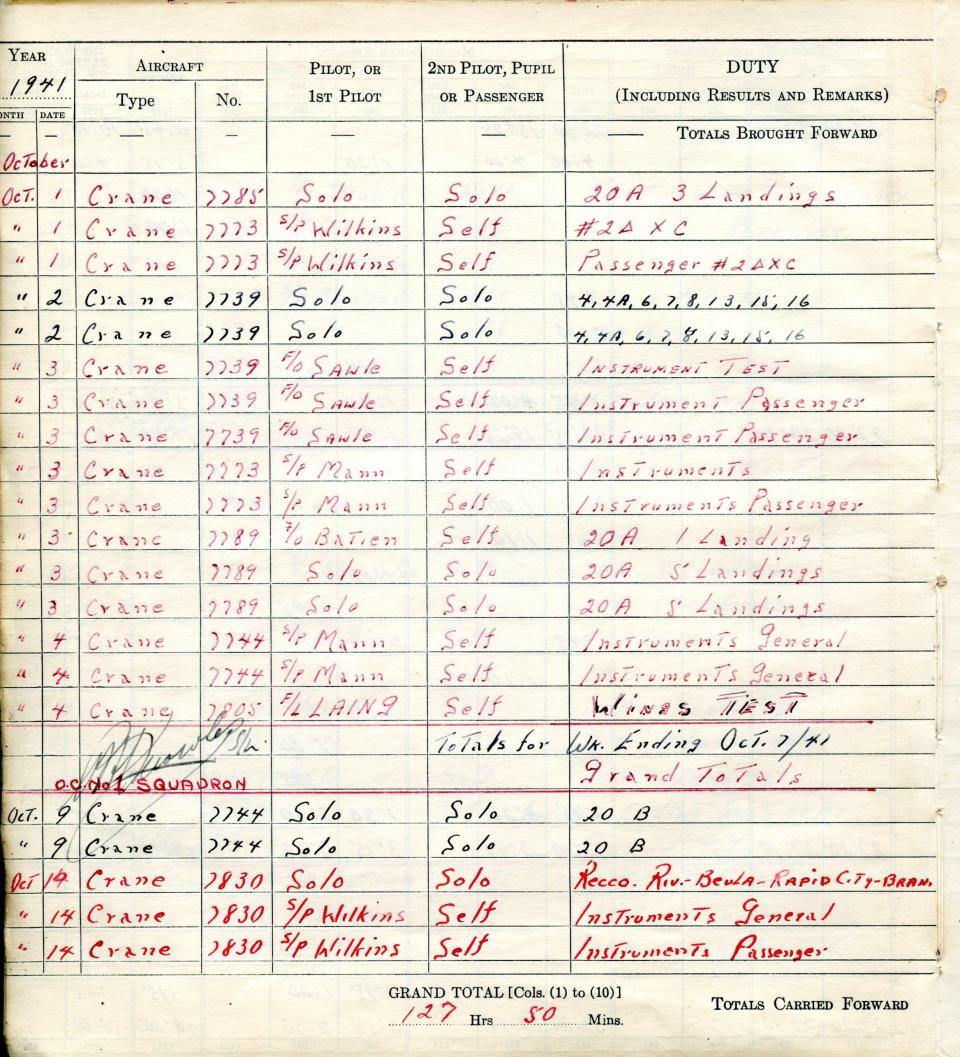 YEAR AIRCRAFT PILOT, OR 2ND PILOT, PUPIL DUTY
1941 Type No. 1ST PILOT OR PASSENGER (INCLUDING RESULTS AND REMARKS)
ONTH DATE
— — — — — — — TOTALS BROUGHT FORWARD
October
Oct. 1 Crane 7785 Solo Solo 20A 3 Landings
" 1 Crane 7773 S/P Wilkins Self #2Δ XC
" 1 Crane 7773 S/P Wilkins Self Passenger #2ΔXC
" 2 Crane 7739 Solo Solo 4, 4A, 6, 7, 8, 13, 15, 16
" 2 Crane 7739 Solo Solo 4, 4A, 6, 7, 8, 13, 15, 16
" 3 Crane 7739 F/O Sawle Self Instrument Test
" 3 Crane 7739 F/O Sawle Self Instrument Passenger
" 3 Crane 7739 F/O Sawle Self Instrument Passenger
" 3 Crane 7773 S/P Mann Self Instruments
" 3 Crane 7773 S/P Mann Self Instruments Passenger
" 3 Crane 7789 F/O Batten Self 20A 1 Landing
" 3 Crane 7789 Solo Solo 20A 5 Landings
" 3 Crane 7789 Solo Solo 20A 5 Landings
" 4 Crane 7744 S/P Mann Self Instruments General
" 4 Crane 7744 S/P Mann Self Instruments General
" 4 Crane 7805 F/L LAING Self Wings Test
S/L. Totals for Wk. Ending Oct. 7/41
Grand Totals
O.C. No 1 SQUADRON
Oct. 9 Crane 7744 Solo Solo 20 B
" 9 Crane 7744 Solo Solo 20 B
Oct 14 Crane 7830 Solo Solo Recco. Riv.-Beula-Rapid City-Bran.
" 14 Crane 7830 S/P Wilkins Self Instruments General
" 14 Crane 7830 S/P Wilkins Self Instruments Passenger
GRAND TOTAL [Cols. (1) to (10)]
127 Hrs 50 Mins. TOTALS CARRIED FORWARD